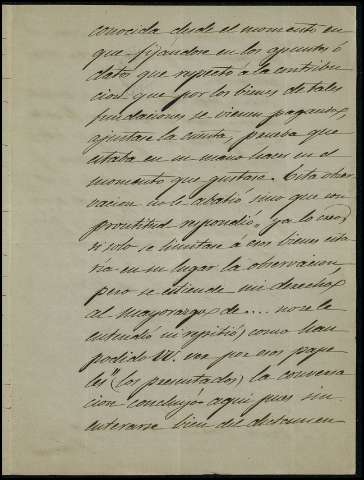 conocida desde el momento en
que fijandose en los apuntos ó
datos que respecto á la contribu
cion que por los bienes de tales
fundaciones se vienen pagando,
ajustase la cuenta, prueba que
estaba en su mano hacer en el
momento que gustase. Esta obser
vacion no le abatio sino que con
prontitud respondió, "ya lo creo,
si solo se limitase á esos bienes esta
ria en su lugar la observacion
pero se estiende mi derecho
al mayorazgo de .... no se le
entendió ni repitió, como han
podido VV. ver por esos pape
les" (los presentados) la conversa
cion concluyó aqui pues sin
enterarse bien del dictamen